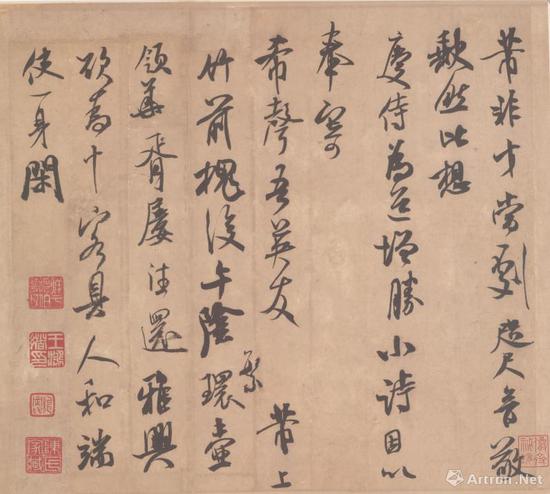 芾非才當劇咫尺音敬
缺然比想
慶侍為道增勝小詩因以
奉寄
希聲吾英友 芾上
繁
竹前槐後午陰環壺
領華胥屢往還雅興
欲為十客具人和端
使一身閑
Artron.Net